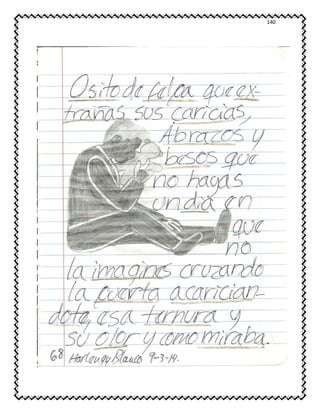 140
Osito de felpa que ex-
trañas sus caricias,
Abrazos y
besos que
no hayas
un día en
que
no
la imagines cruzando
la puerta acarician-
dote, esa ternura y
su olor y como miraba.
68 9-3-14.